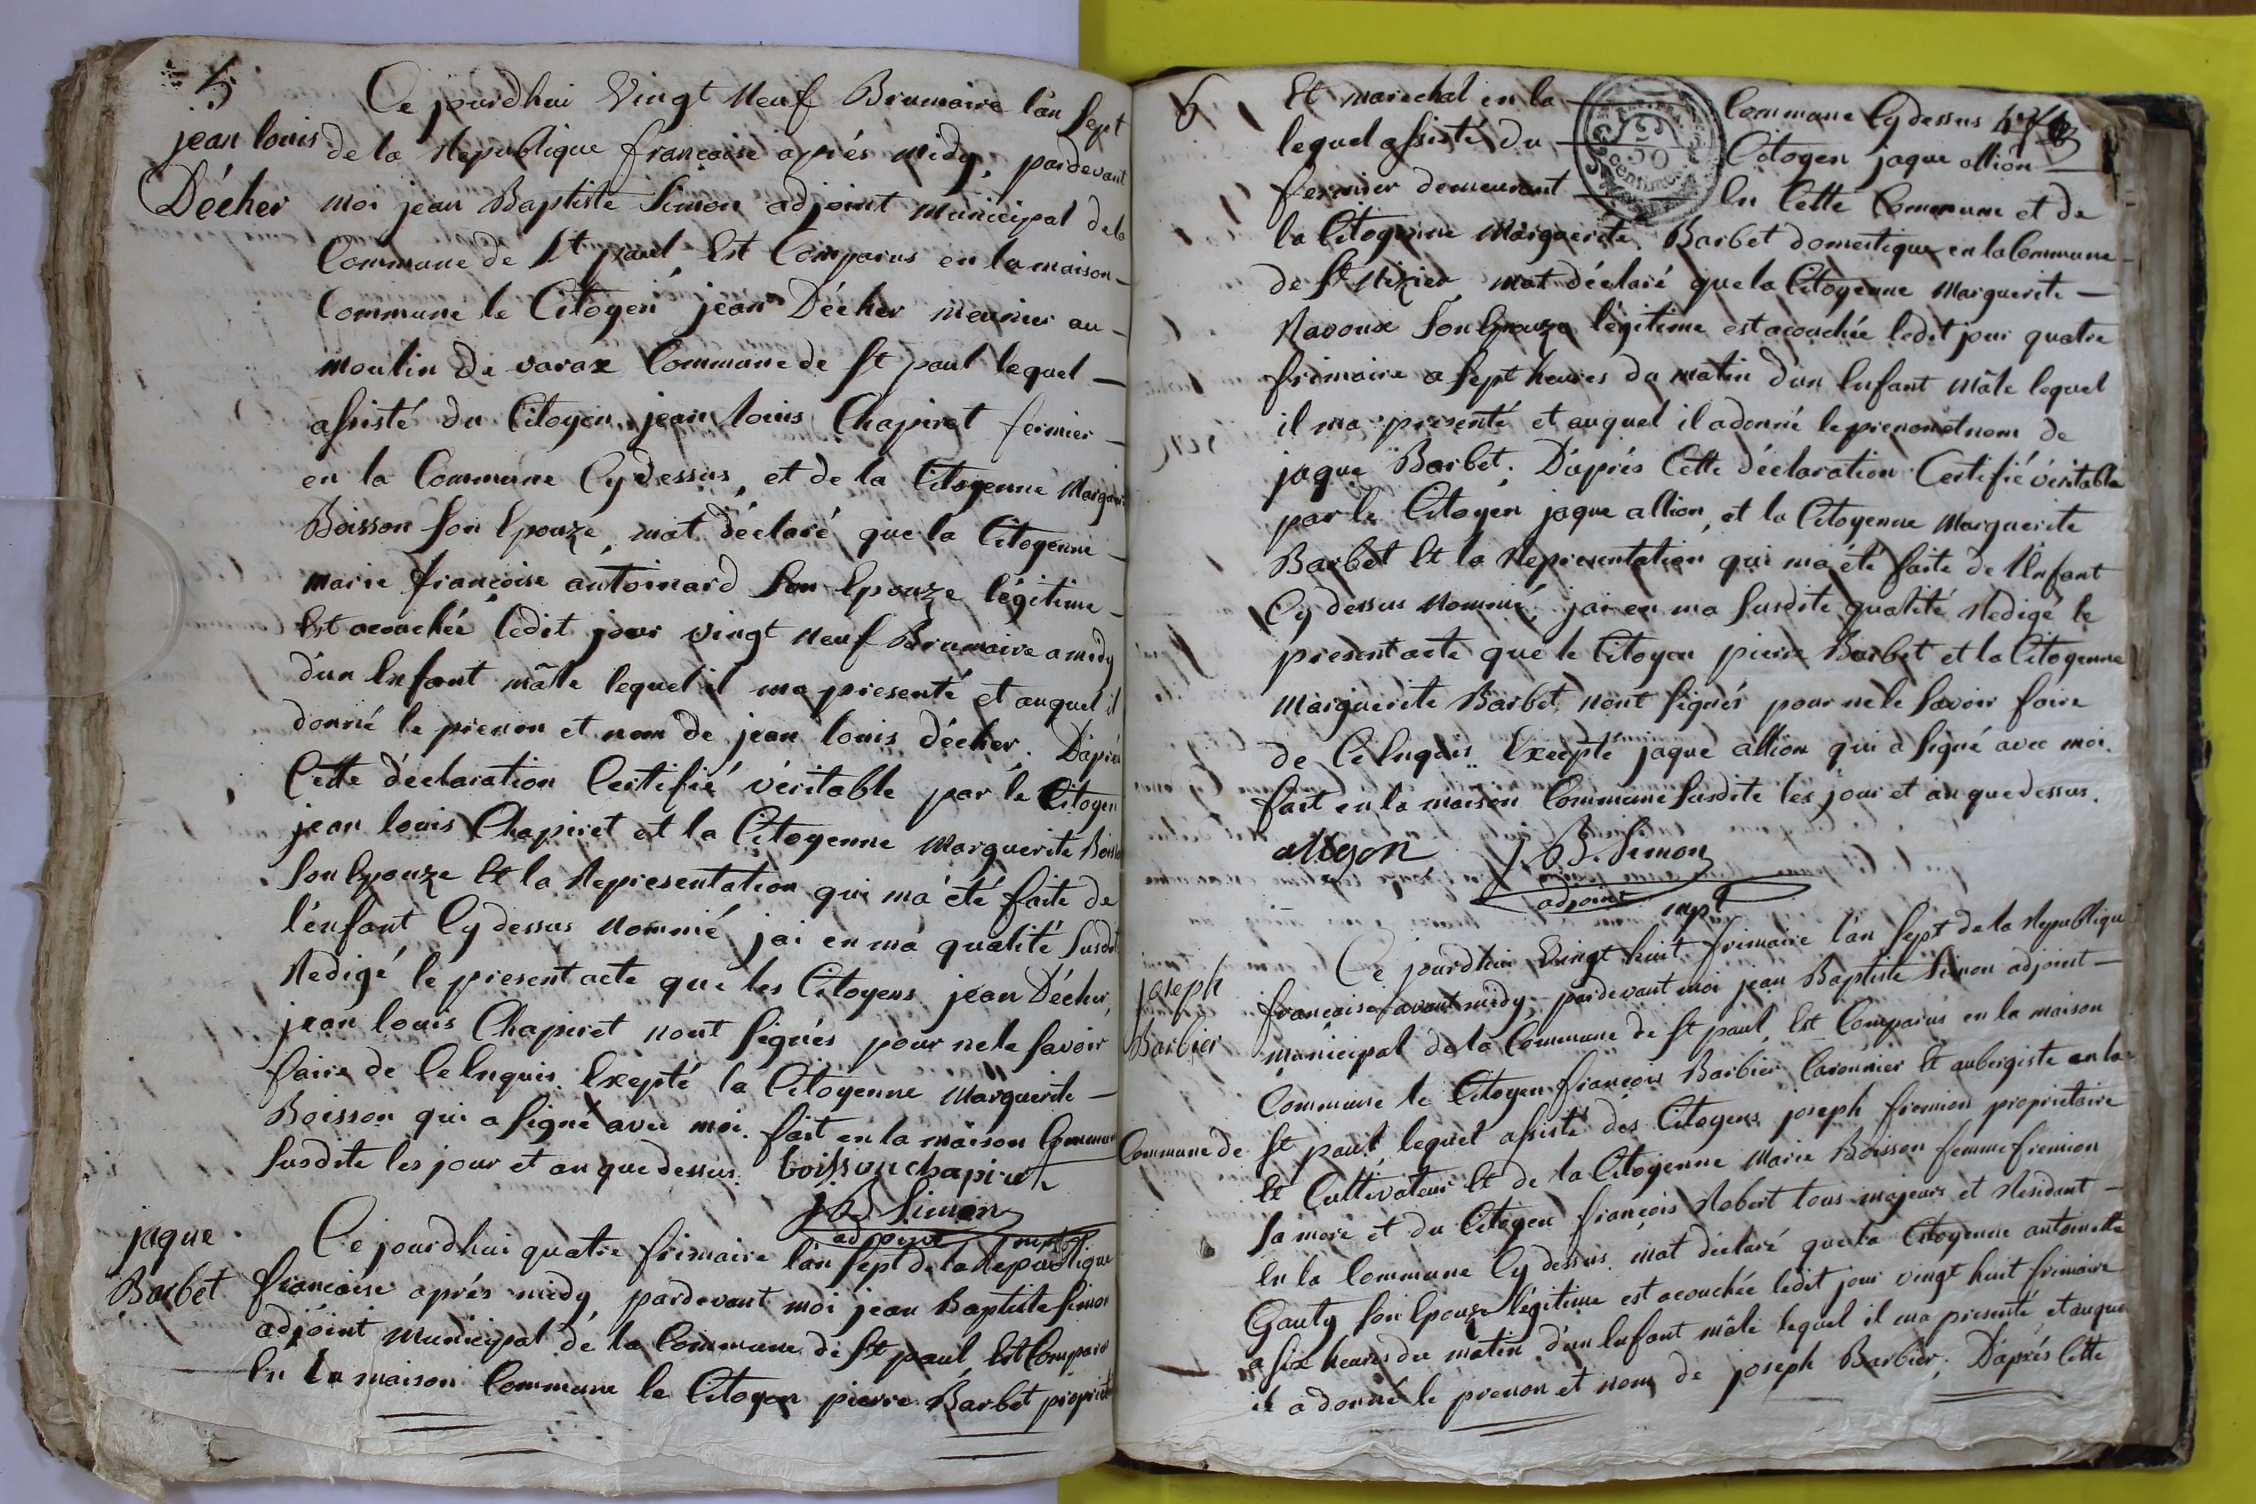 5
Ce jourdhui Vingt Neuf Brumaire l'an Sept
jean louis
Décher
de la Republique françoise aprés midy, pardevant
moi jean Baptiste Simon adjoint municipal de la
Commune de St paul Est Comparus en la maison
Commune le Citoyen jean Décher meunier au
moulin de varax Commune de St paul lequel
assisté du Citoyen jean louis Chapiret fermier
en la Commune Cy dessus, et de la Citoyenne
Boisson Son Epouze, mat déclaré que la Citoyenne
marie françoise antoinard Son Epouze légitime
Est acouchée ledit jour vingt neuf Brumaire a midy
d'un Enfant mâle lequel il ma presenté et auquel il
donné le prenon et nom de jean louis décher. D'aprés
Cette déclaration Certifié véritable par le Citoyen
jean louis Chapiret et la Citoyenne Marguerite
Son Epouze Et la Representation qui ma été faite de
l'enfant Cy dessus Nommé jai en ma qualité Susdit
Redigé le present acte que les Citoyens jean Décher,
jean louis Chapiret nont Signés pour ne le Savoir
faire de Ce Enquis. Exepté la Citoyenne Marguerite
Boisson qui a Signé avec moi. fait en la maison Commune
Susdite les jour et an que dessus. boisson chapiret
J B Simon
adjoint mpl
jaque
Barbet
Ce jourdhui quatre frimaire l'an Sept de la Republique
francaise aprés midy, pardevant moi jean Baptiste Simon
adjoint municipal de la Commune de St paul Est Comparu
En La maison Commune le Citoyen pierre Barbet
6
Et marechal en la Commune Cy dessus
lequel assisté du Citoyen jaque allion
fermier demeurant En Cette Commune et de
la Citoyenne Marguerite Barbet domestique en la Commune
de St Nizier mat déclaré que la Citoyenne Marguerite
Ravoux Son Epouze légitime est acouchée ledit jour quatre
frimaire a Sept heures du matin d'un Enfant mâle lequel
il ma presenté et auquel il a donné le prenon et nom de
jaque Barbet. D'aprés Cette déclaration Certifié véritable
par le Citoyen jaque allion, et la Citoyenne Marguerite
Barbet Et la Representation qui ma été faite de l'Enfant
Cy dessus Nommé, jai en ma Susdite qualité Redigé le
present acte que le Citoyen pierre Barbet et la Citoyenne
Marguerite Barbet nont Signés pour ne le Savoir faire
de Ce Enquis Exepté jaque allion qui a Signé avec moi.
fait en la maison Commune Susdite les jour et an que dessus.
allyon J B. Simon
adjoint mpl
Ce jourdhui Vingt huit frimaire l'an Sept de la Republique
joseph
Barbier
francaise avant midy, pardevant moi jean Baptiste Simon adjoint
municipal de la Commune de St paul, Est Comparus en la maison
Commune le Citoyen françois Barbier Et aubergiste en la
Commune de St paul, lequel assisté des Citoyens joseph fremion proprietaire
Et Cultivateur Et de la Citoyenne Marie Boisson femme fremion
Sa mere et du Citoyen françois Robert tous majeurs et Residant
En la Commune Cy dessus. mat déclaré que la Citoyenne antoinette
Gauty Son Epouze légitime est acouchée ledit jour vingt huit frimaire
a Six heures du matin d'un Enfant mâle lequel il ma presenté, et auquel
il a donné le prenon et nom de joseph Barbier. D'aprés Cette